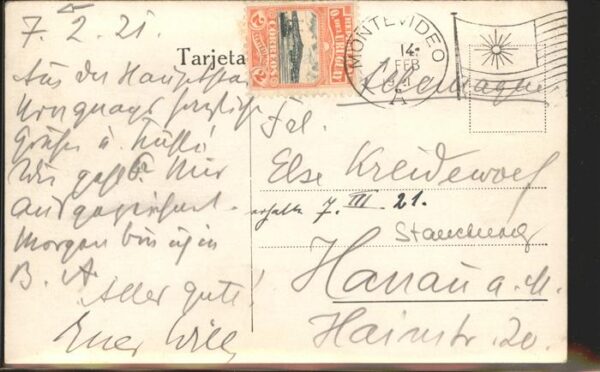 7. 2. 21.
Tarjeta
Aus der Hauptstadt
Uruguays herzliche
Grüße u. Küsse!
Wie geht's? Mir
ausgezeichnet.
Morgen bin ich in
B. A.
Alles gute!
Euer Willy
2c
CORREOS
MONTEVIDEO
14
FEB
A
Allemagne
Frl.
Else
erhalten 7. III 21.
Hanau a. M.
Hainstr. 20.